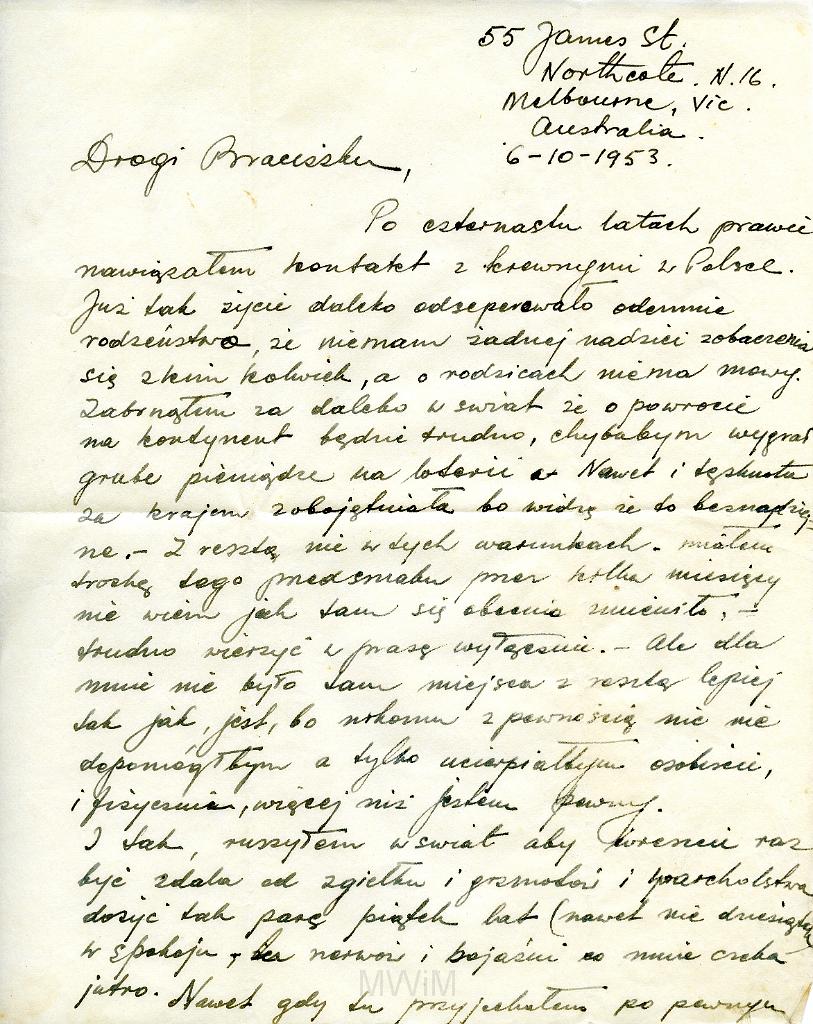 55 James St.
Northcote. N.16.
Melbourne, Vic.
Australia.
6-10-1953.
Drogi Braciszku,
Po czternastu latach prawie
nawiązałem kontakt z krewnymi w Polsce.
Już tak życie daleko odseperowało odemnie
rodzeństwo, że niemam żadnej nadzieji zobaczenia
się z kim kolwiek, a o rodzicach niema mowy.
Zabrnąłem za daleko w swiat że o powrocie
na kontynent będzie trudno, chybabym wygrał
grube pieniądze na loterii Nawet i tęsknota
za krajem zobojętniała bo widzę że to beznadziej-
ne. - Z resztą nie w tych warunkach. miałem
trochę tego predsmaku przez kilka miesięcy
nie wiem jak tam się obecnie zmieniło, -
trudno wierzyć w prasę wyłącznie. - Ale dla
mnie nie było tam miejsca z resztą lepiej
tak jak, jest, bo nikomu z pewnością nic nie
depomógłbym a tylko ucierpiałbym osobiscie,
i fizycznie, więcej niż jestem pewny.
I tak, ruszyłem w swiat aby wreszcie raz
być zdala od zgiełku i grzmotów i warcholstwa
dożyć tak parę piątek lat (nawet nie dziesiątek
w spokoju, bez nerwów i bojaźni co mnie czeka
jutro. Nawet gdy tu przyjechałem po pewnym
MWiM